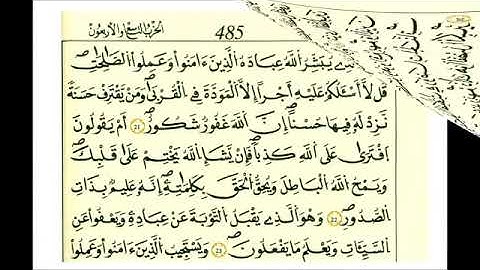 485 الحزب التاسع والأربعون
يُبَشِّرُ اللَّهُ عِبَادَهُ الذِينَ ءَامَنُواْ وَعَمِلُواْ الصَّٰلِحَٰتِ
قُل لَّا أَسْـَٔلُكُمْ عَلَيْهِ أَجْرًا اِلَّا الْمَوَدَّةَ فِي الْقُرْبَىٰ وَمَنْ يَّقْتَرِفْ حَسَنَةً
نَّزِدْ لَهُ فِيهَا حُسْنًا اِنَّ اللَّهَ غَفُورٌ شَكُورٌ 21 أَمْ يَقُولُونَ
اَفْتَرَىٰ عَلَى اللَّهِ كَذِبًا فَإِنْ يَّشَإِ اللَّهُ يَخْتِمْ عَلَىٰ قَلْبِكَ
وَيَمْحُ اللَّهُ الْبَاطِلَ وَيُحِقُّ الْحَقَّ بِكَلِمَٰتِهِ إِنَّهُ عَلِيمٌ بِذَاتِ
الصُّدُورِ 22 وَهُوَ الذِي يَقْبَلُ التَّوْبَةَ عَنْ عِبَادِهِ وَيَعْفُواْ عَنِ
السَّيِّـَٔاتِ وَيَعْلَمُ مَا يَفْعَلُونَ 23 وَيَسْتَجِيبُ الذِينَ ءَامَنُواْ وَعَمِلُواْ